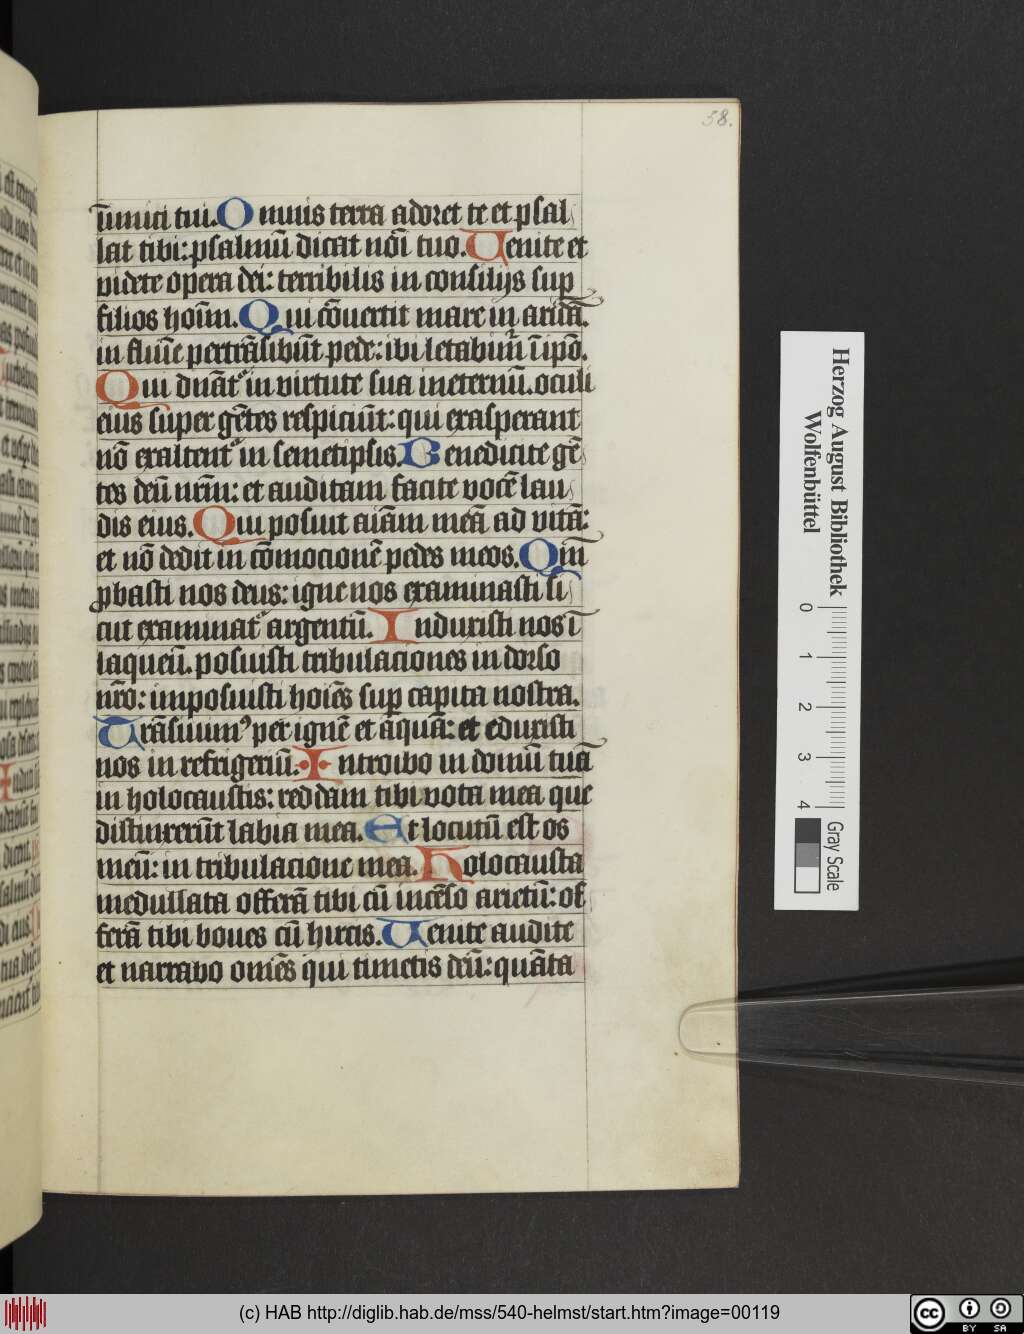 58.
īimici tui. Omnis terra adoret te et psal
lat tibi: psalmū dicat nōi tuo. Uenite et
videte opera dei: terribilis in consilijs sup
filios hoīm. Qui cōuertit mare in aridā.
in flumīe pertrāsibūt pede: ibi letabimr̄ ī ipō.
Qui dnāt' in virtute sua ineternū. oculi
eius super gētes respiciūt: qui exasperant
nō exaltent' in semetipsis. Benedicite gē
tes deū nrm̄: et auditam facite vocē lau
dis eius. Qui posuit aīam meā ad vitā:
et nō dedit in cōmocionē pedes meos. Qm̄
ꝓbasti nos deus: igne nos examinasti si
cut examinat' argentū. Induxisti nos ī
laqueū. posuisti tribulaciones in dorso
nr̄o: imposuisti hoīes sup capita nostra.
Trāsiuim9 per ignē et aquā: et eduxisti
nos in refrigeriū. Introibo in domū tuā
in holocaustis: reddam tibi vota mea que
distinxerūt labia mea. Et locutū est os
meū: in tribulacione mea. Holocausta
medullata offerā tibi cū incēso arietū: of
ferā tibi boues cū hircis. Uenite audite
et narrabo omēs qui timetis deū: quāta
Herzog August Bibliothek
Wolfenbüttel
0 1 2 3 4
Gray Scale
(c) HAB http://diglib.hab.de/mss/540-helmst/start.htm?image=00119
cc BY SA